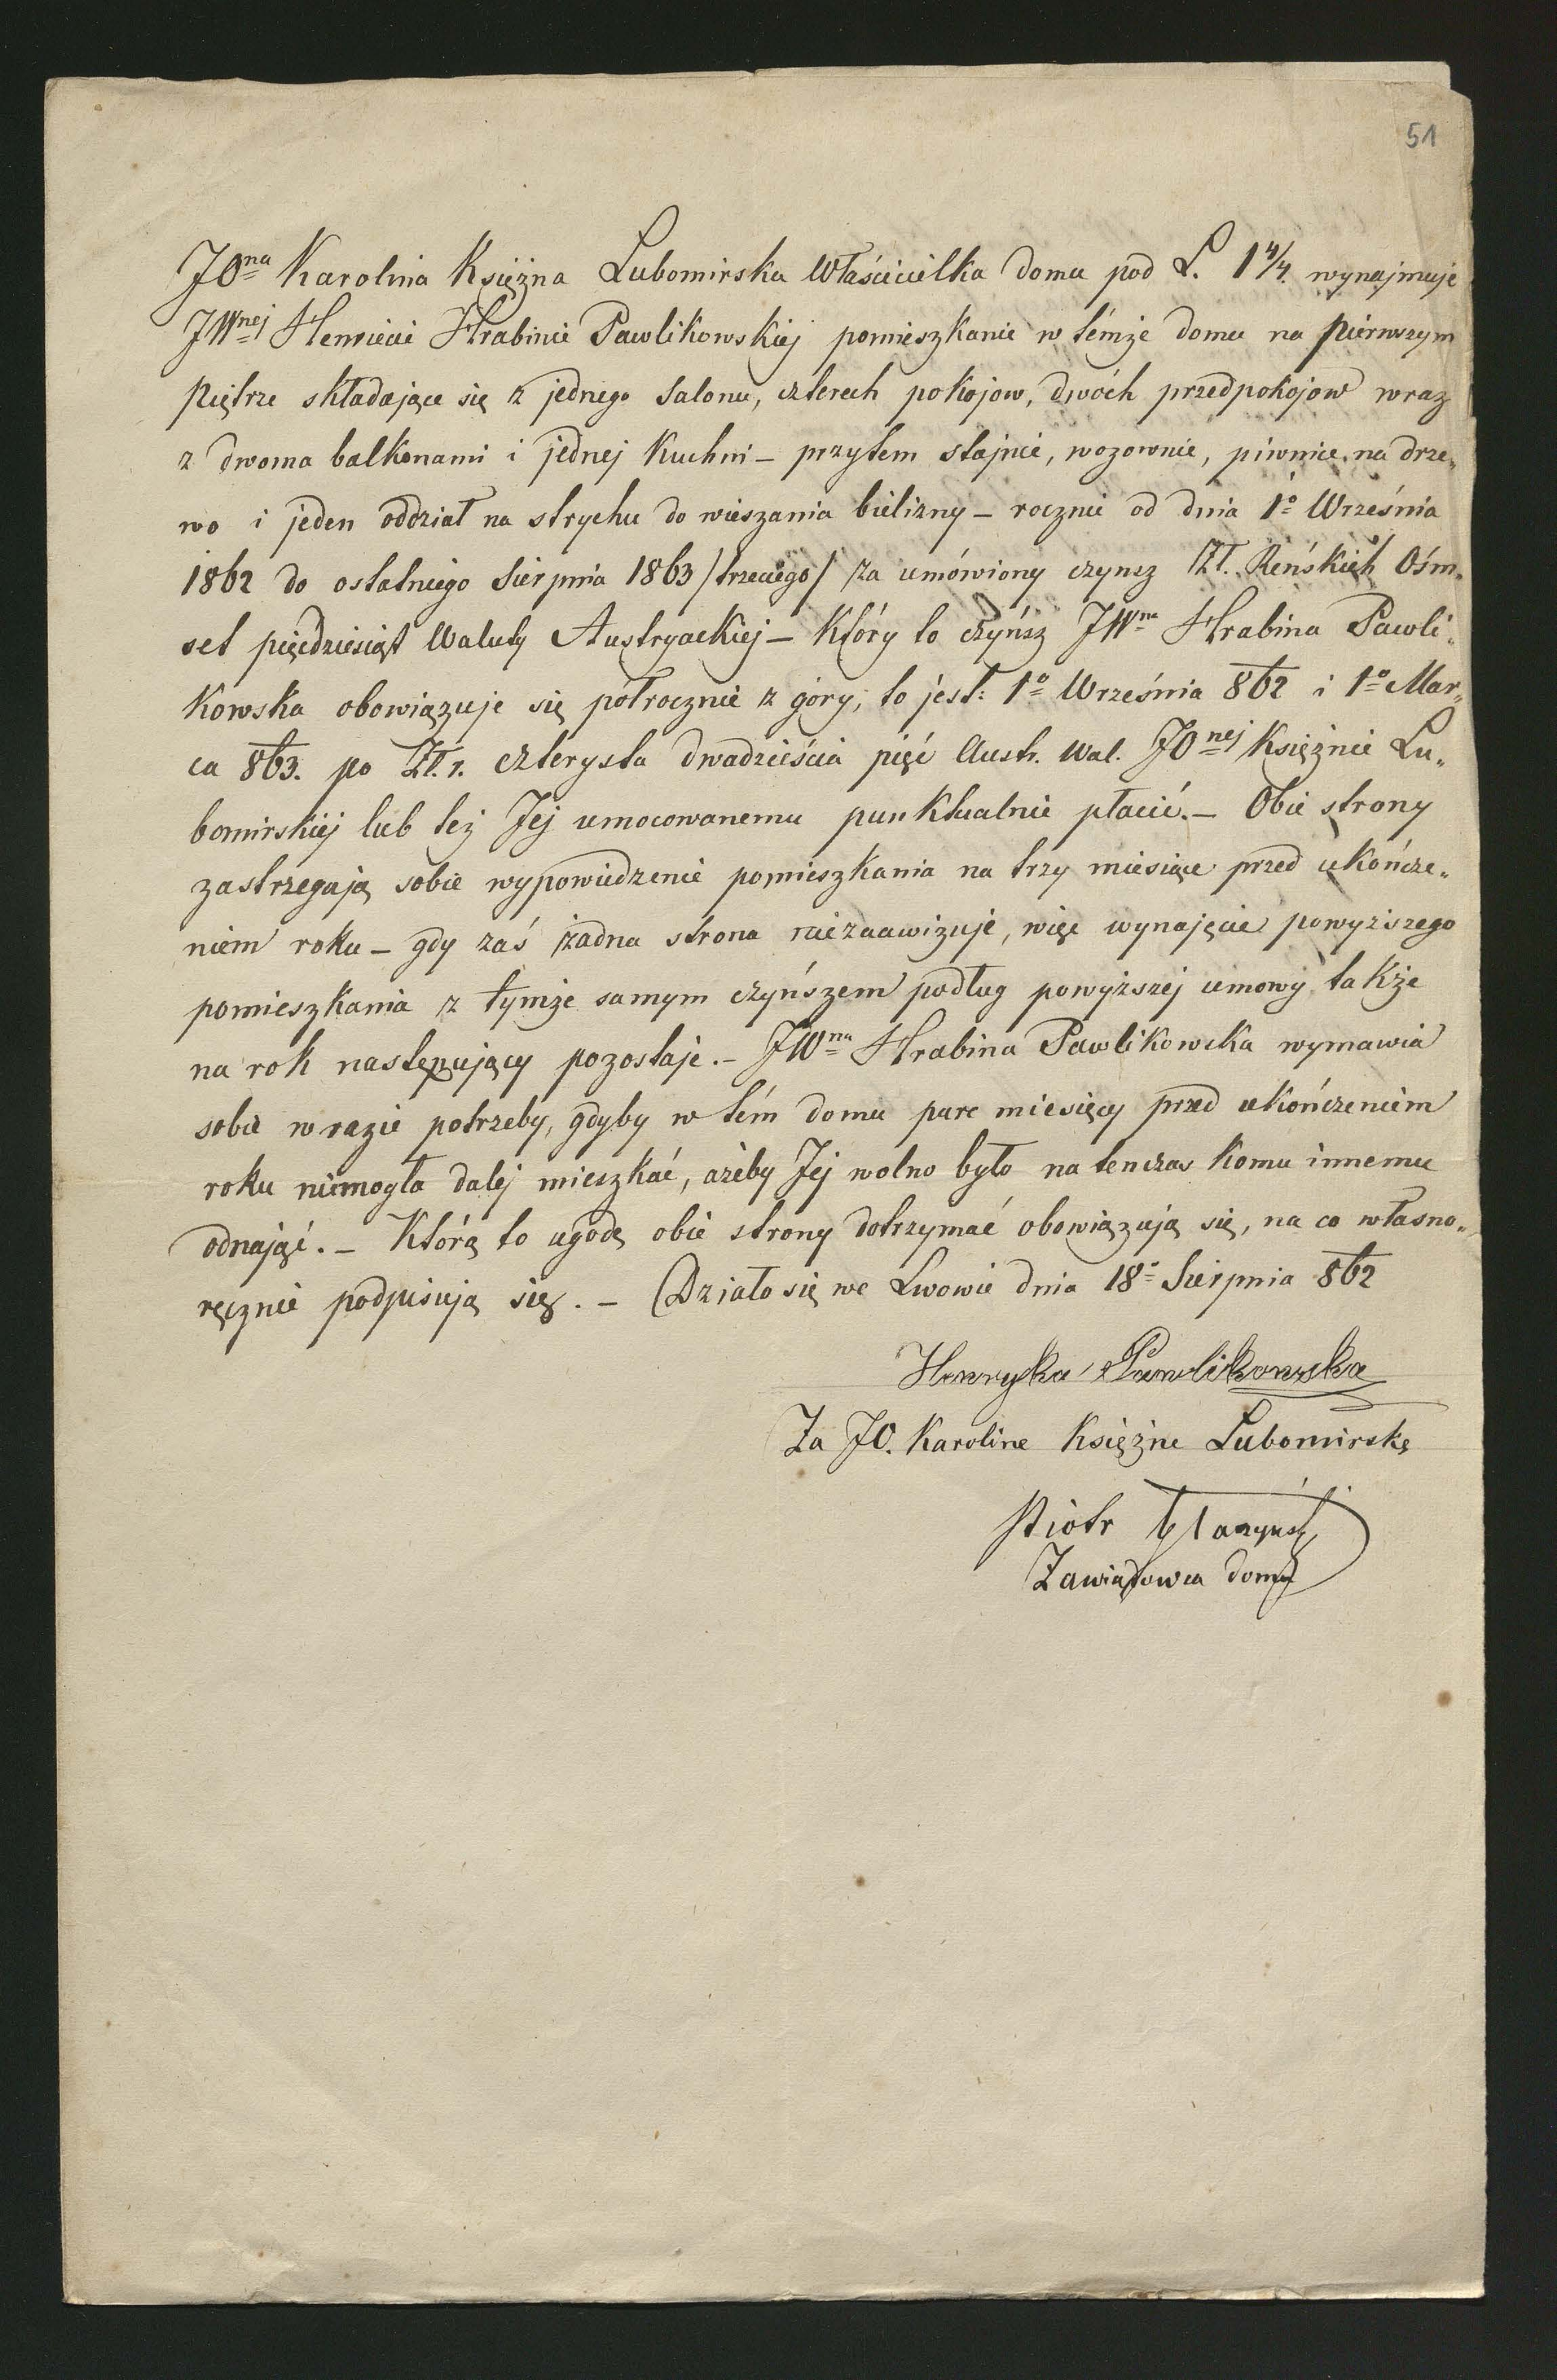 51
JOna Karolina Księżna Lubomirska Właścicielka domu pod L. 1 4/4. wynajmuje
JWnej Henriecie Hrabinie Pawlikowskiej pomieszkanie w témże domu na pierwszym
piętrze składające się z jednego salonu, czterech pokojow, dwóch przedpokojow wraz
z dwoma balkonami i jednej Kuchni – przytem stajnie, wozownie, piwnice na drze„
wo i jeden oddział na strychu do wieszania bielizny – rocznie od dnia 1o Września
1862 do ostatniego Sierpnia 1863 /trzeciego/ za umówiony czynsz Zł. Reńskich Ośm„
set pięćdziesiąt Waluty Austryackiej – Który to czyńsz JWna Hrabina Pawli„
Kowska obowiązuje się półrocznie z góry, to jest: 1o Września 862 i 1o Mar„
ca 863. po Zł. r. czterysta dwadzieścia pięć Austr. Wal. JOnej Księżnie Lu„
bomirskiej lub też Jej umocowanemu punktualnie płacić. – Obie strony
zastrzegają sobie wypowiedzenie pomieszkania na trzy miesiące przed ukończe„
niem roku – gdy zaś żadna strona niezaawizuje, więc wynajęcie powyższego
pomieszkania z tymże samym czyńszem podług powyższej umowy także
na rok następujący pozostaje. – JWna Hrabina Pawlikowska wymawia
sobie w razie potrzeby, gdyby w tém domu pare miesięcy przed ukończeniem
roku niemogła dalej mieszkać, ażeby Jej wolno było natenczas komu innemu
odnająć. – Którą to ugodę obie strony dotrzymać obowiązują się, na co własno„
ręcznie podpisują się. – Działo się we Lwowie dnia 18o Sierpnia 862
Henryka Pawlikowska
Za JO. Karoline Księżne Lubomirskę
Piotr
Zawiadowca domu